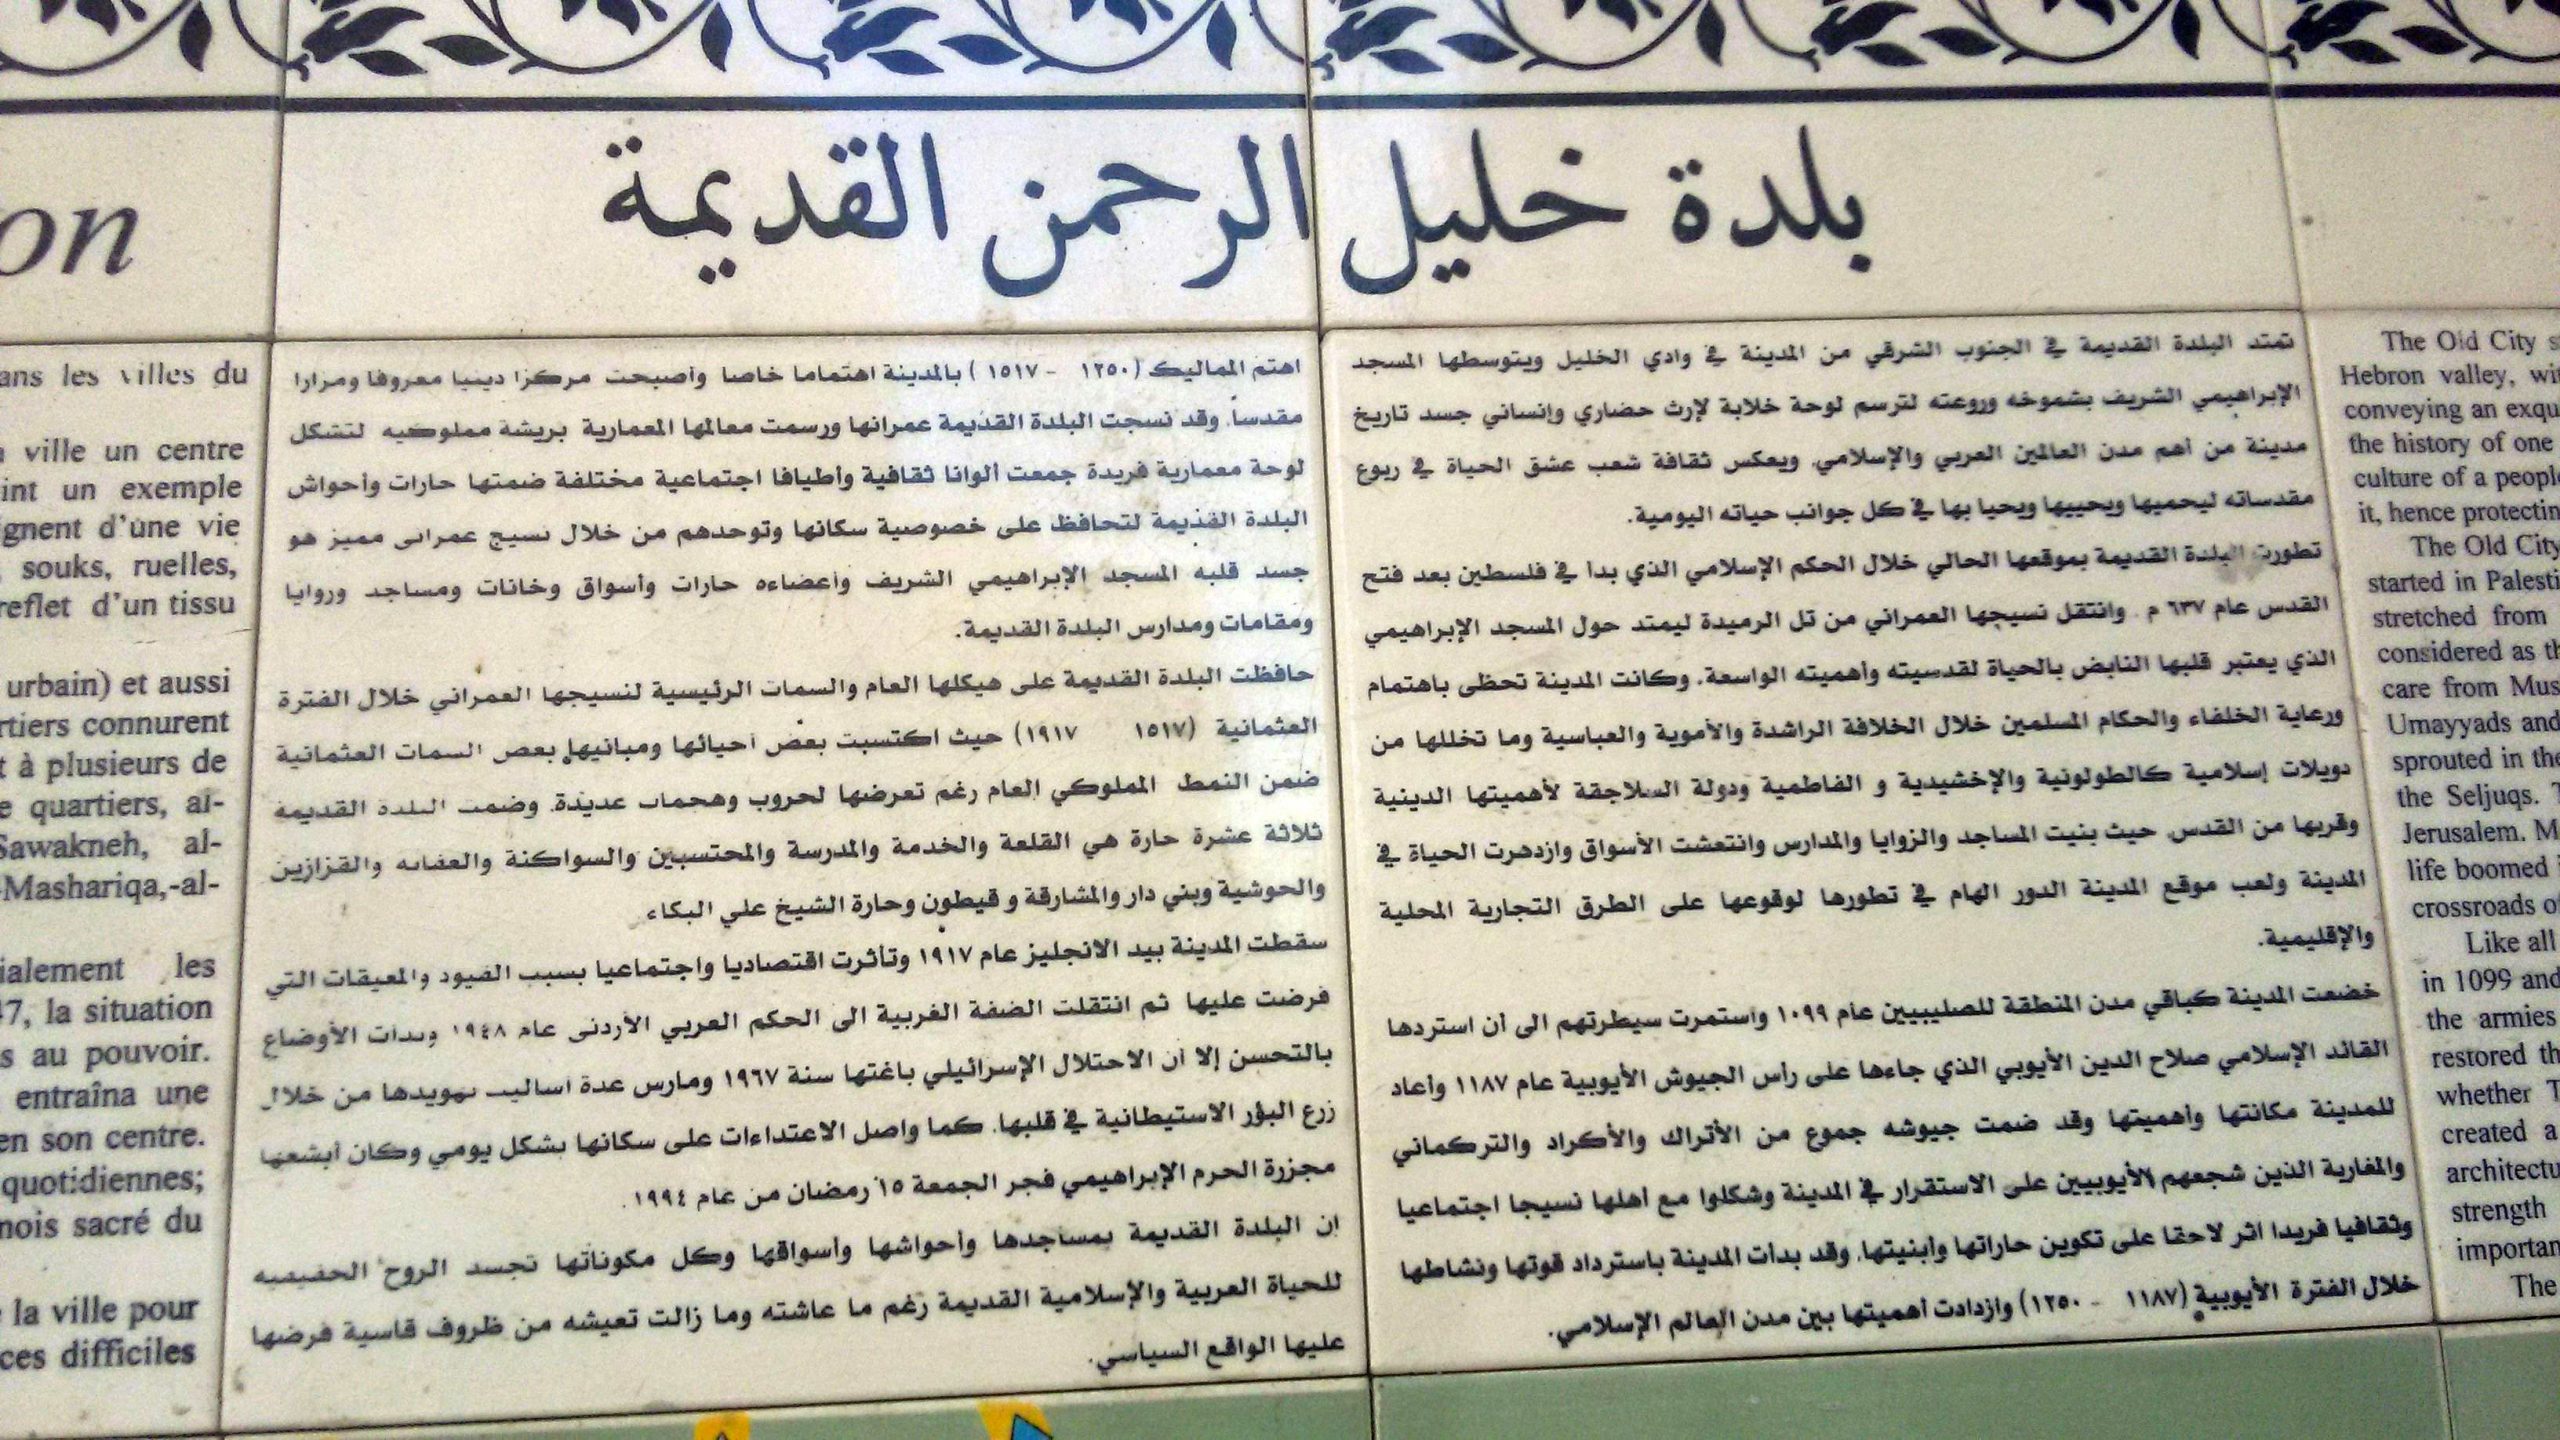 بلدة خليل الرحمن القديمة
تمتد البلدة القديمة في الجنوب الشرقي من المدينة في وادي الخليل ويتوسطها المسجد
الإبراهيمي الشريف بشموخه وروعته لترسم لوحة خلابة لإرث حضاري وإنساني جسد تاريخ
مدينة من أهم مدن العالمين العربي والإسلامي. ويعكس ثقافة شعب عشق الحياة في ربوع
مقدساته ليحميها ويحييها ويحيا بها في كل جوانب حياته اليومية.
تطورت البلدة القديمة بموقعها الحالي خلال الحكم الإسلامي الذي بدأ في فلسطين بعد فتح
القدس عام ٦٣٧ م. وانتقل نسيجها العمراني من تل الرميدة ليمتد حول المسجد الإبراهيمي
الذي يعتبر قلبها النابض بالحياة لقدسيته وأهميته الواسعة. وكانت المدينة تحظى باهتمام
ورعاية الخلفاء والحكام المسلمين خلال الخلافة الراشدة والأموية والعباسية وما تخللها من
دويلات إسلامية كالطولونية والإخشيدية و الفاطمية ودولة السلاجقة لأهميتها الدينية
وقربها من القدس. حيث بنيت المساجد والزوايا والمدارس وانتعشت الأسواق وازدهرت الحياة في
المدينة ولعب موقع المدينة الدور الهام في تطورها لوقوعها على الطرق التجارية المحلية
والإقليمية.
خضعت المدينة كباقي مدن المنطقة للصليبيين عام ١٠٩٩ واستمرت سيطرتهم الى أن استردها
القائد الإسلامي صلاح الدين الأيوبي الذي جاءها على رأس الجيوش الأيوبية عام ١١٨٧ وأعاد
للمدينة مكانتها وأهميتها وقد ضمت جيوشه جموع من الأتراك والأكراد والتركماني
والمغاربة الذين شجعهم الأيوبيين على الاستقرار في المدينة وشكلوا مع أهلها نسيجا اجتماعيا
وثقافيا فريدا اثر لاحقا على تكوين حاراتها وأبنيتها. وقد بدأت المدينة باسترداد قوتها ونشاطها
خلال الفترة الأيوبية (١١٨٧ - ١٢٥٠) وازدادت أهميتها بين مدن العالم الإسلامي.
اهتم المماليك (١٢٥٠ - ١٥١٧) بالمدينة اهتماما خاصا وأصبحت مركزا دينيا معروفا ومزارا
مقدساً. وقد نسجت البلدة القديمة عمرانها ورسمت معالمها المعمارية بريشة مملوكيه لتشكل
لوحة معمارية فريدة جمعت ألوانا ثقافية وأطيافا اجتماعية مختلفة ضمتها حارات وأحواش
البلدة القديمة لتحافظ على خصوصية سكانها وتوحدهم من خلال نسيج عمراني مميز هو
جسد قلبه المسجد الإبراهيمي الشريف وأعضاءه حارات وأسواق وخانات ومساجد وروايا
ومقامات ومدارس البلدة القديمة.
حافظت البلدة القديمة على هيكلها العام والسمات الرئيسية لنسيجها العمراني خلال الفترة
العثمانية (١٥١٧ ١٩١٧) حيث اكتسبت بعض أحيائها ومبانيها بعض السمات العثمانية
ضمن النمط المملوكي العام رغم تعرضها لحروب وهجمات عديدة. وضمت البلدة القديمة
ثلاثة عشرة حارة هي القلعة والخدمة والمدرسة والمحتسبين والسواكنة والعقابه والقزازين
والحوشية وبني دار والمشارقة و قيطون وحارة الشيخ علي البكاء.
سقطت المدينة بيد الانجليز عام ١٩١٧ وتأثرت اقتصاديا واجتماعيا بسبب القيود والمعيقات التي
فرضت عليها ثم انتقلت الضفة الغربية الى الحكم العربي الأردني عام ١٩٤٨ وبدأت الأوضاع
بالتحسن إلا أن الاحتلال الإسرائيلي باغتها سنة ١٩٦٧ ومارس عدة أساليب تهويدها من خلال
زرع البؤر الاستيطانية في قلبها. كما واصل الاعتداءات على سكانها بشكل يومي وكان أبشعها
مجزرة الحرم الإبراهيمي فجر الجمعة ١٥ رمضان من عام ١٩٩٤.
إن البلدة القديمة بمساجدها وأحواشها وأسواقها وكل مكوناتها تجسد الروح الحقيقيه
للحياة العربية والإسلامية القديمة رغم ما عاشته وما زالت تعيشه من ظروف قاسية فرضها
عليها الواقع السياسي.
The Old City
Hebron valley,
conveying an
the history of one
culture of a
it, hence
The Old City
started in
stretched from
considered as
care from
Umayyads and
sprouted in
the Seljuqs.
Jerusalem.
life boomed
crossroads
Like all
in 1099 and
the armies
restored
whether
created a
strength
The
on
ans les villes du
ville un centre
int un exemple
gnent d'une vie
souks, ruelles,
reflet d'un tissu
urbain) et aussi
rtiers connurent
t à plusieurs de
e quartiers, al-
Sawakneh, al-
-Mashariqa,-al-
ialement les
47, la situation
s au pouvoir.
entraîna une
en son centre.
quotidiennes;
nois sacré du
la ville pour
ces difficiles